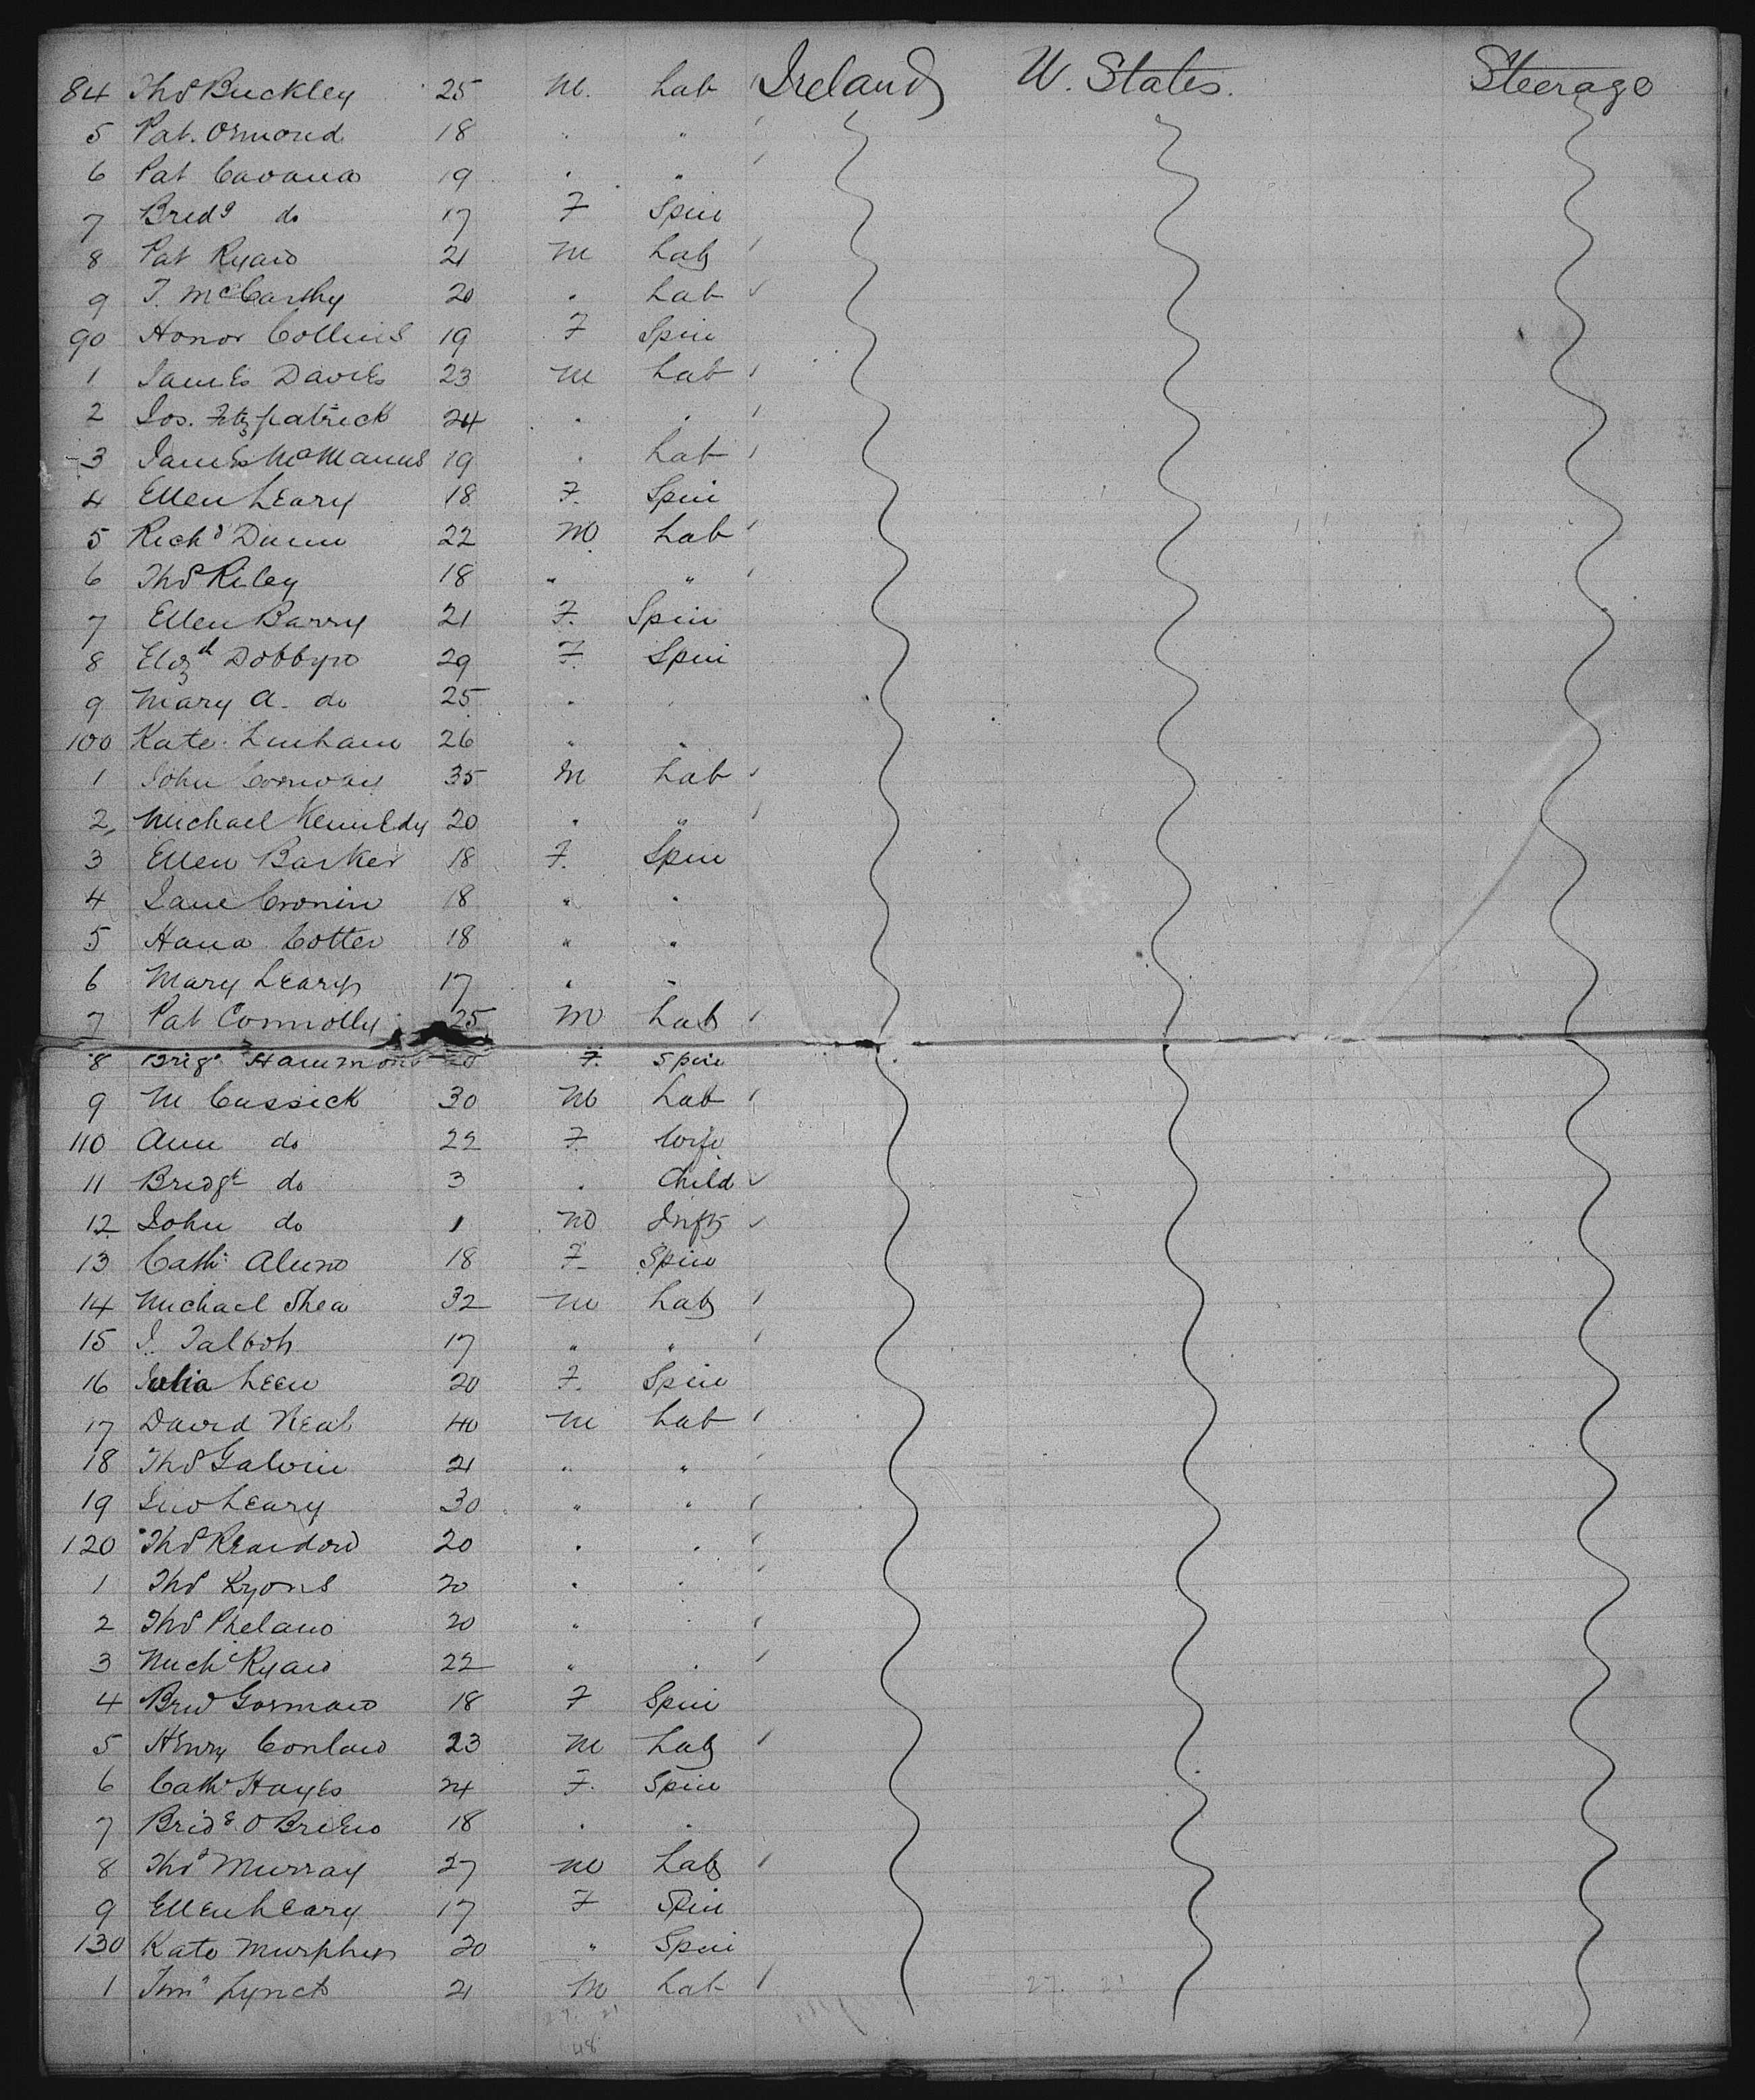 84 Thos Buckley 25 M. Lab Ireland U. States. Steerage
5 Pat. Ormond 18 " "
6 Pat Cavana 19 " "
7 Bredg do 17 F Spin
8 Pat Ryan 21 M Lab
9 T. McCarthy 20 " Lab
90 Honor Collins 19 F Spin
1 James Davies 23 M Lab
2 Jos. Fitzpatrick 24 " "
3 James McManus 19 " Lab
4 Ellen Leary 18 F. Spin
5 Richd Dunn 22 M Lab
6 Thos Riley 18 " "
7 Ellen Barry 21 F. Spin
8 Elizth Dobbyn 29 F. Spin
9 Mary A. do 25 " "
100 Kate Linham 26 " "
1 John Conway 35 M Lab
2 Michael Kennedy 20 " "
3 Ellen Barker 18 F. Spin
4 Jane Cronin 18 " "
5 Hana Cotter 18 " "
6 Mary Leary 17 " "
7 Pat Connolly 25 M Lab
8 Brigt Hammond F. Spin
9 M Cussick 30 M Lab
110 Ann do 22 F Wife
11 Bridgt do 3 " Child
12 John do 1 M Inft
13 Cath 18 F Spin
14 Michael Shea 32 M Lab
15 J. Talbot 17 " "
16 Julia Leen 20 F. Spin
17 David Neal 40 M Lab
18 Thos Galvin 21 " "
19 Jno Leary 30 " "
120 Thos Reardon 20 " "
1 Thos Lyons 20 " "
2 Thos Phelan 20 " "
3 Michl Ryan 22 " "
4 Brid Gorman 18 F Spin
5 Henry Conlan 23 M Lab
6 Cath Hayes 24 F. Spin
7 Bridg O Brien 18 " "
8 Thos Murray 27 M Lab
9 Ellen Leary 17 F Spin
130 Kate Murphy 20 " Spin
1 Timy Lynch 21 M Lab 27. 21
27. 21
48